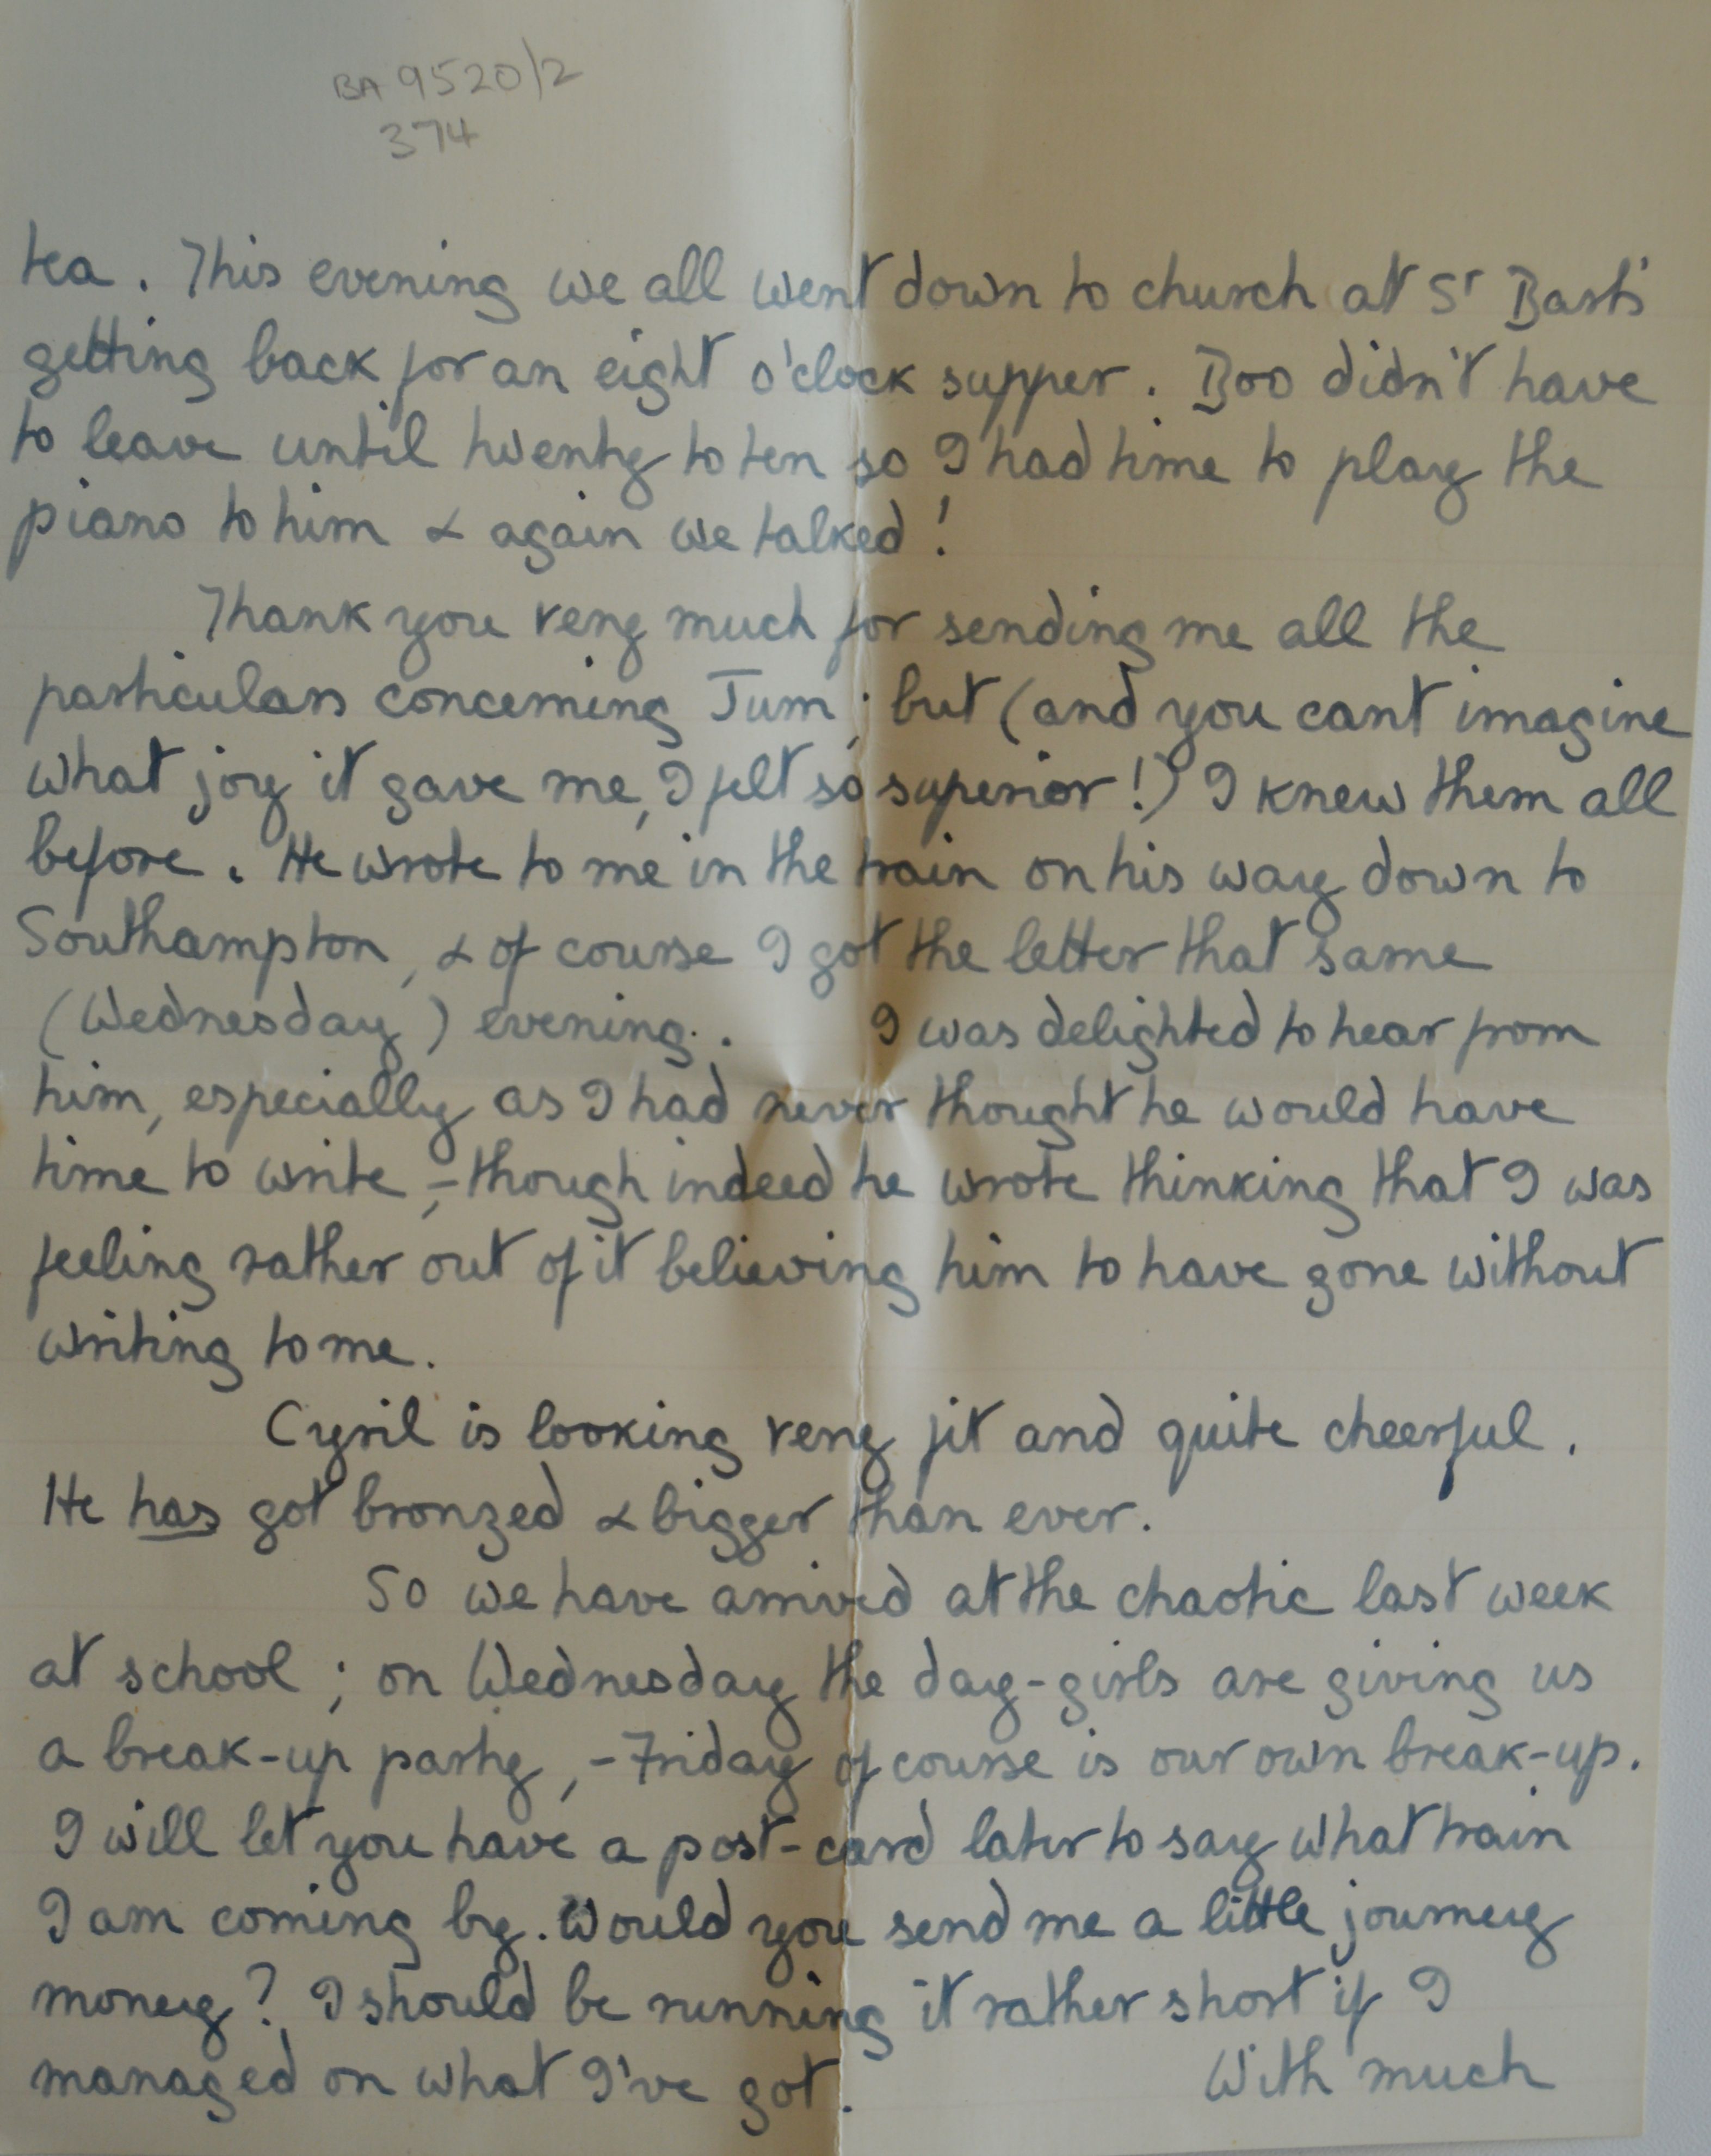 BA 9520/2
374
tea. This evening we all went down to church at St Bart's
getting back for an eight o'clock supper. Boo didn't have
to leave until twenty to ten so I had time to play the
piano to him & again we talked!
Thank you very much for sending me all the
particulars concerning Jum; but (and you cant imagine
what joy it gave me, I felt so superior!) I knew them all
before. He wrote to me in the train on his way down to
Southampton, & of course I got the letter that same
(Wednesday) evening. I was delighted to hear from
him, especially as I had never thought he would have
time to write, - though indeed he wrote thinking that I was
feeling rather out of it believing him to have gone without
writing to me.
Cyril is looking very fit and quite cheerful.
He has got bronzed & bigger than ever.
So we have arrived at the chaotic last week
at school; on Wednesday the day-girls are giving us
a break-up party, - Friday of course is our own break-up.
I will let you have a post-card later to say what train
I am coming by. Would you send me a little journey
money? I should be running it rather short if I
managed on what I've got. With much